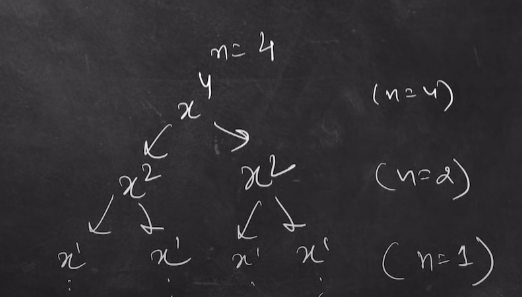 n=4
x⁴ (n=4)
x² x² (n=2)
x¹ x¹ x¹ x¹ (n=1)